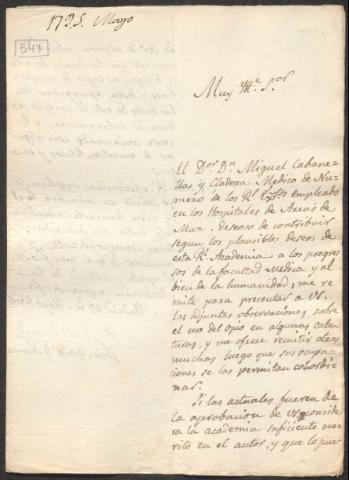 1795. Mayo
547
Muy Ytre. S.or
El D.or D.n Miguel Cabane-
llas y Cladera Medico de Nu-
mero de los R.s Ex.tos empleado
en los Hospitales de Arens de
Mar. deseoso de contribuir
segun los plausibles deseos de
esta R.l Academia a los progre-
sos de la facultad Medica y al
bien de la humanidad, me re-
mite para presentar a VS.
las adjuntas observaciones sobre
el uso del opio en algunas calen-
turas, y me ofrece remitir otras
muchas luego que sus ocupa-
ciones se las permitan coordi-
nar.
Si las actuales fueren de
la aprobacion de VS. y conside-
ra la academia suficiente me-
rito en el autor, y que lo pue-